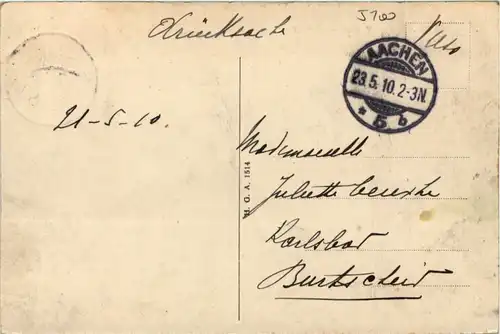 Drucksache
5700
AACHEN
23.5.10.2-3N.
* 5 b
21-5-10.
H. G. A. 1514
Mademoiselle
Juliette
Karlsbad
Burtscheid